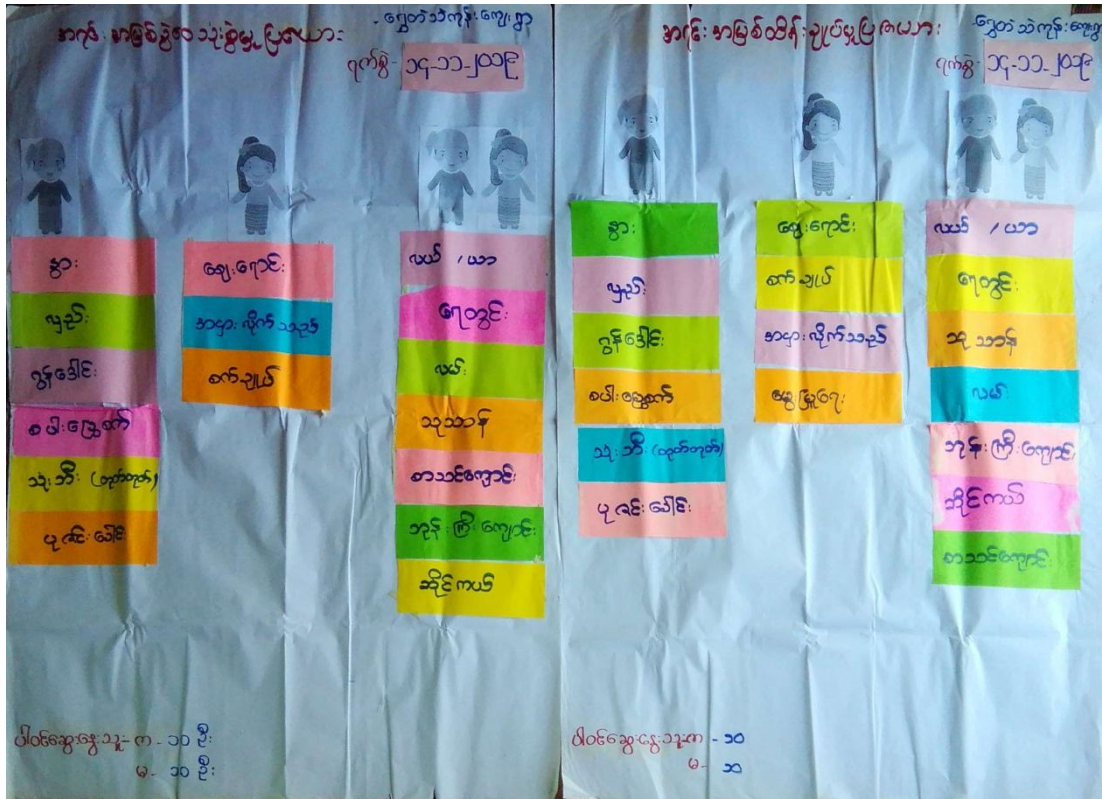 အရင်းအမြစ်ခွဲဝေသုံးစွဲမှုပြဇယား
-ရွှေတဲသဲကုန်းကျေးရွာ
ရက်စွဲ - ၁၄-၁၁-၂၀၁၉
နွား
လှည်း
ဂွန်ဒေါင်း
စပါးခြွေစက်
သုံးဘီး (တုတ်တုတ်)
ပုဇင်းပေါင်း
ဈေးရောင်း
အငှားလိုက်သည်
စက်ချုပ်
လယ် / ယာ
ရေတွင်း
လမ်း
သုသာန်
စာသင်ကျောင်း
ဘုန်းကြီးကျောင်း
ဆိုင်ကယ်
ပါဝင်ဆွေးနွေးသူ - က - ၁၀ ဦး
မ - ၁၀ ဦး
အရင်းအမြစ်ထိန်းချုပ်မှုပြဇယား
-ရွှေတဲသဲကုန်းကျေးရွာ
ရက်စွဲ - ၁၄-၁၁-၂၀၁၉
နွား
လှည်း
ဂွန်ဒေါင်း
စပါးခြွေစက်
သုံးဘီး (တုတ်တုတ်)
ပုဇင်းပေါင်း
ဈေးရောင်း
စက်ချုပ်
အငှားလိုက်သည်
မွေးမြူရေး
လယ် / ယာ
ရေတွင်း
သုသာန်
လမ်း
ဘုန်းကြီးကျောင်း
ဆိုင်ကယ်
စာသင်ကျောင်း
ပါဝင်ဆွေးနွေးသူ က - ၁၀
မ -